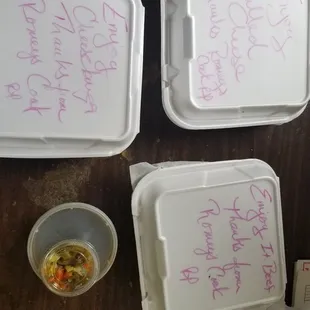 Enjoy
Cheeseburger
Thanks from
Romeys Cook
RP
Enjoy
Grilled
Cheese
Thanks Romeys
Cook RP
Enjoy It Best
Thanks from
Romeys Cook
RP